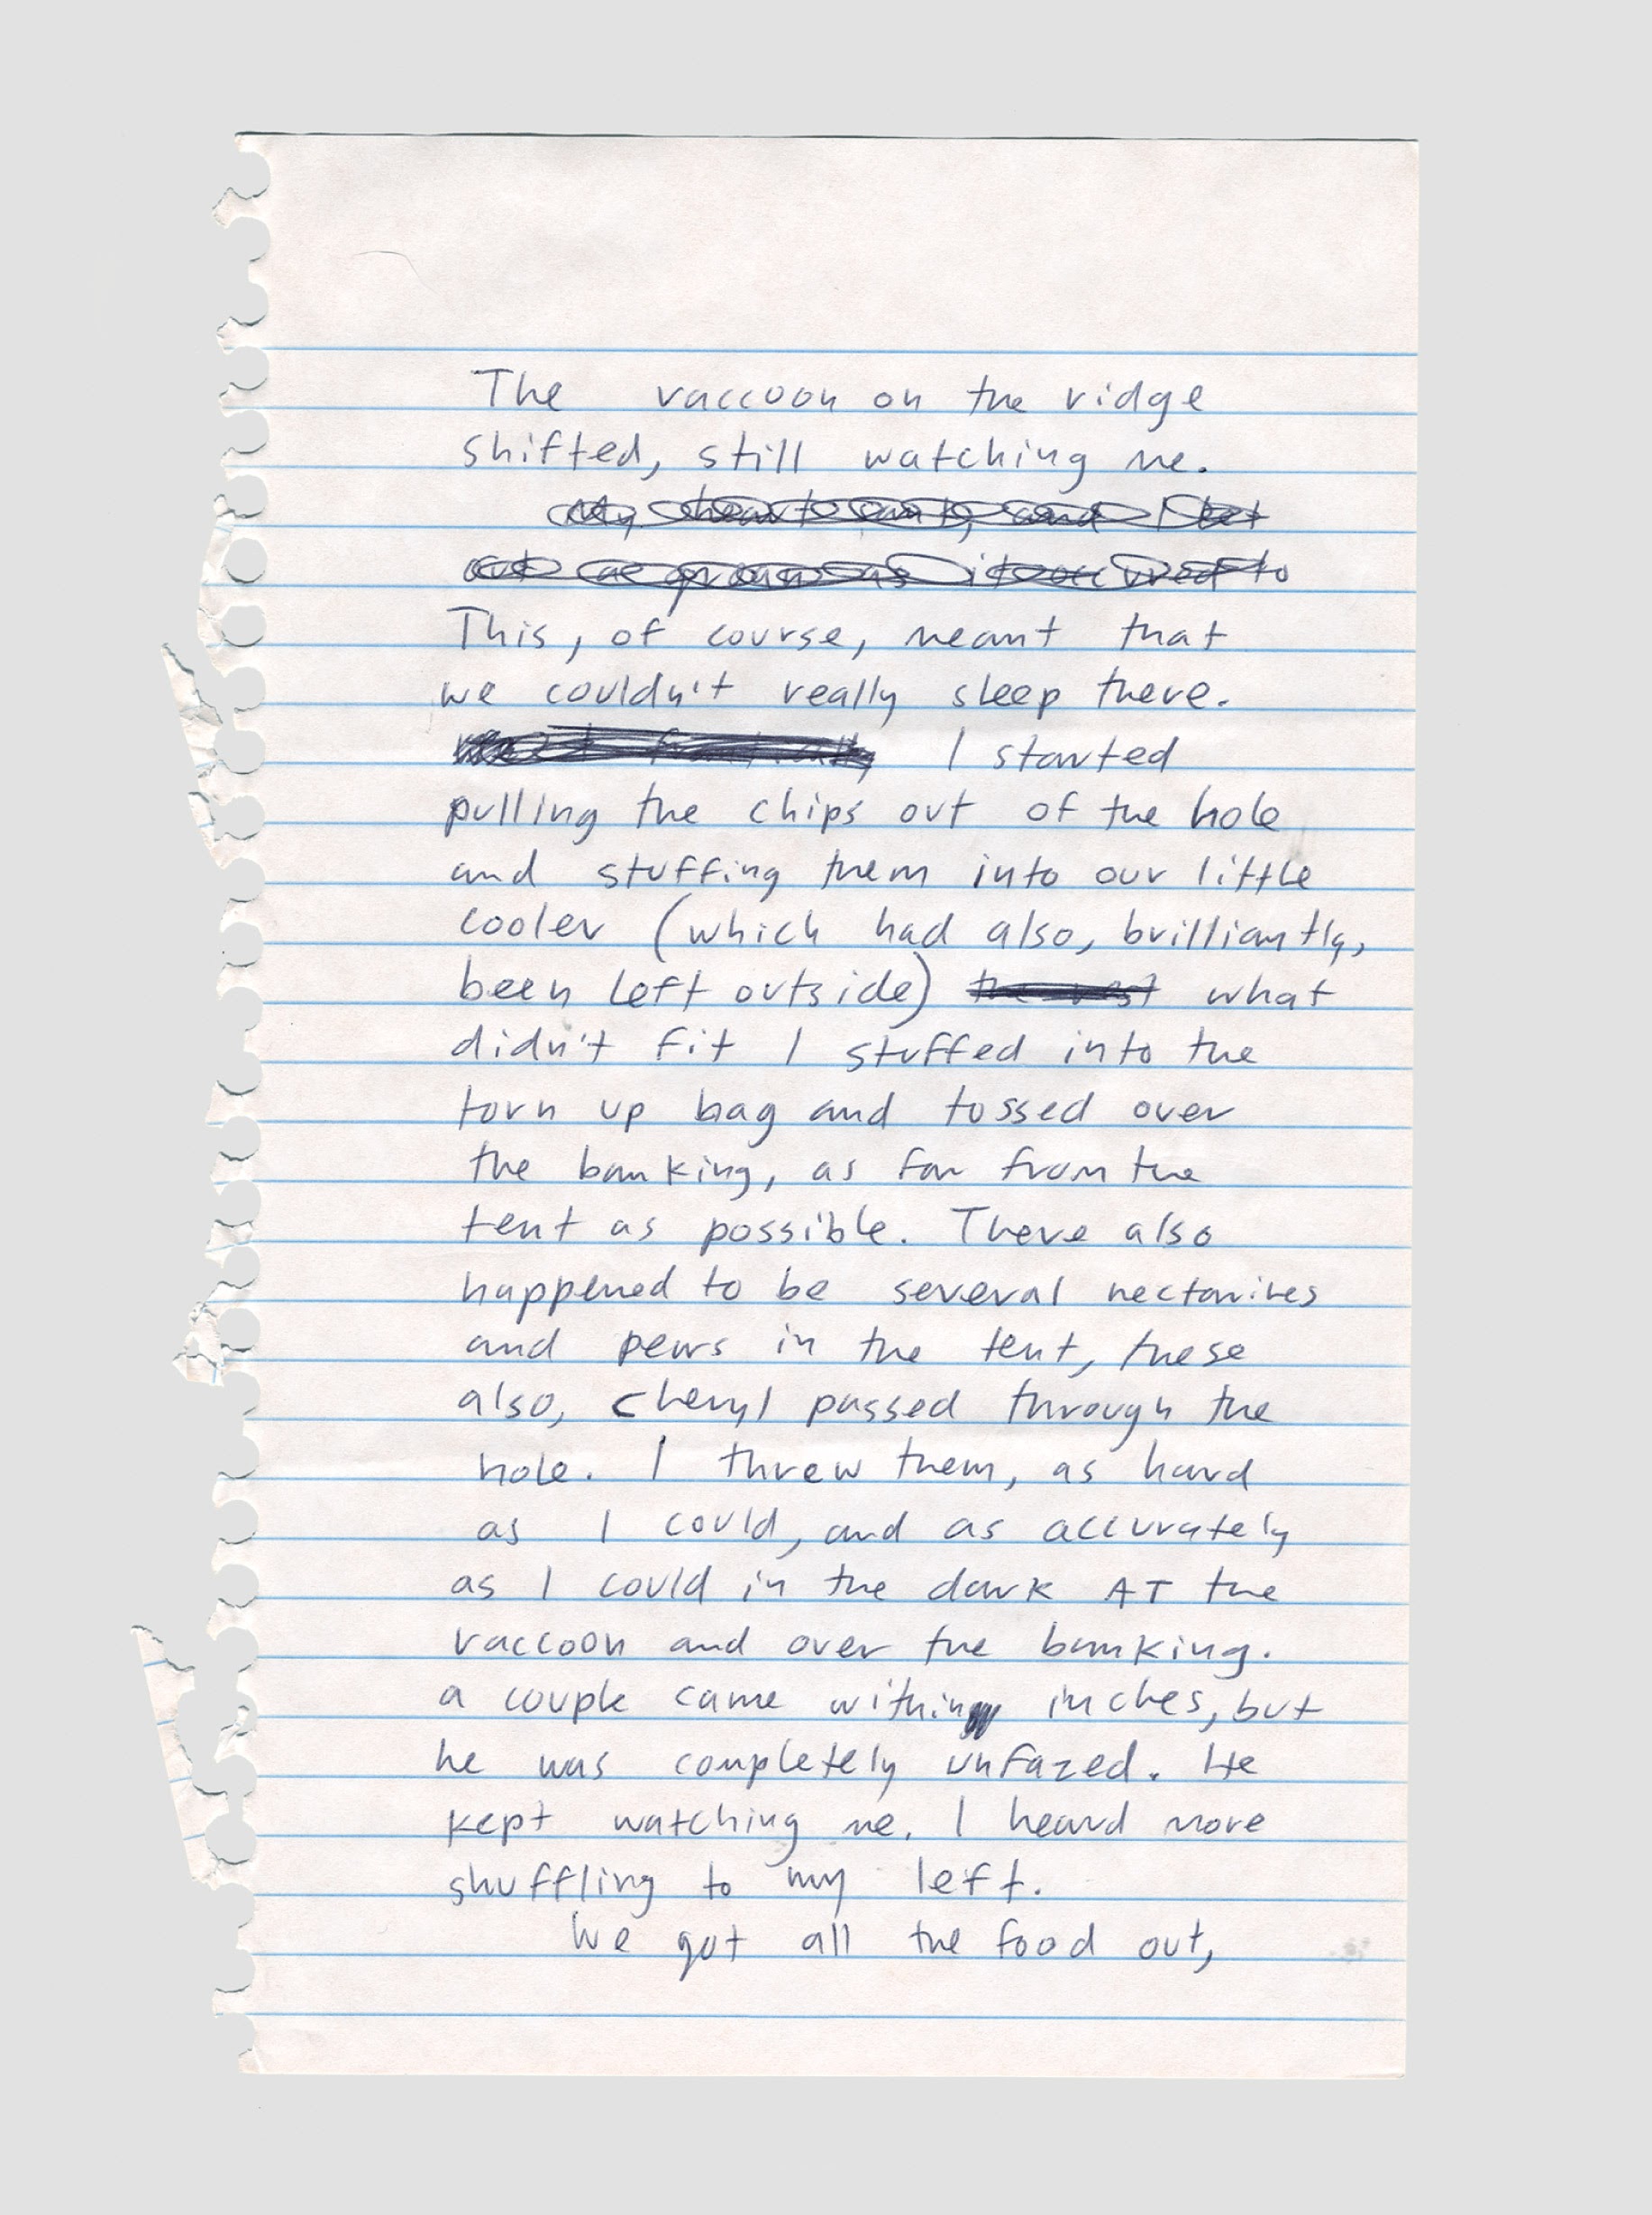 The raccoon on the ridge
shifted, still watching me.
My heart sank, and I let
out a groan as it occurred to
This, of course, meant that
we couldn't really sleep there.
I started
pulling the chips out of the hole
and stuffing them into our little
cooler (which had also, brilliantly,
been left outside) the rest what
didn't fit I stuffed into the
torn up bag and tossed over
the banking, as far from the
tent as possible. There also
happened to be several nectarines
and pears in the tent, these
also, Cheryl passed through the
hole. I threw them, as hard
as I could, and as accurately
as I could in the dark AT the
raccoon and over the banking.
a couple came within inches, but
he was completely unfazed. He
kept watching me. I heard more
shuffling to my left.
We got all the food out,